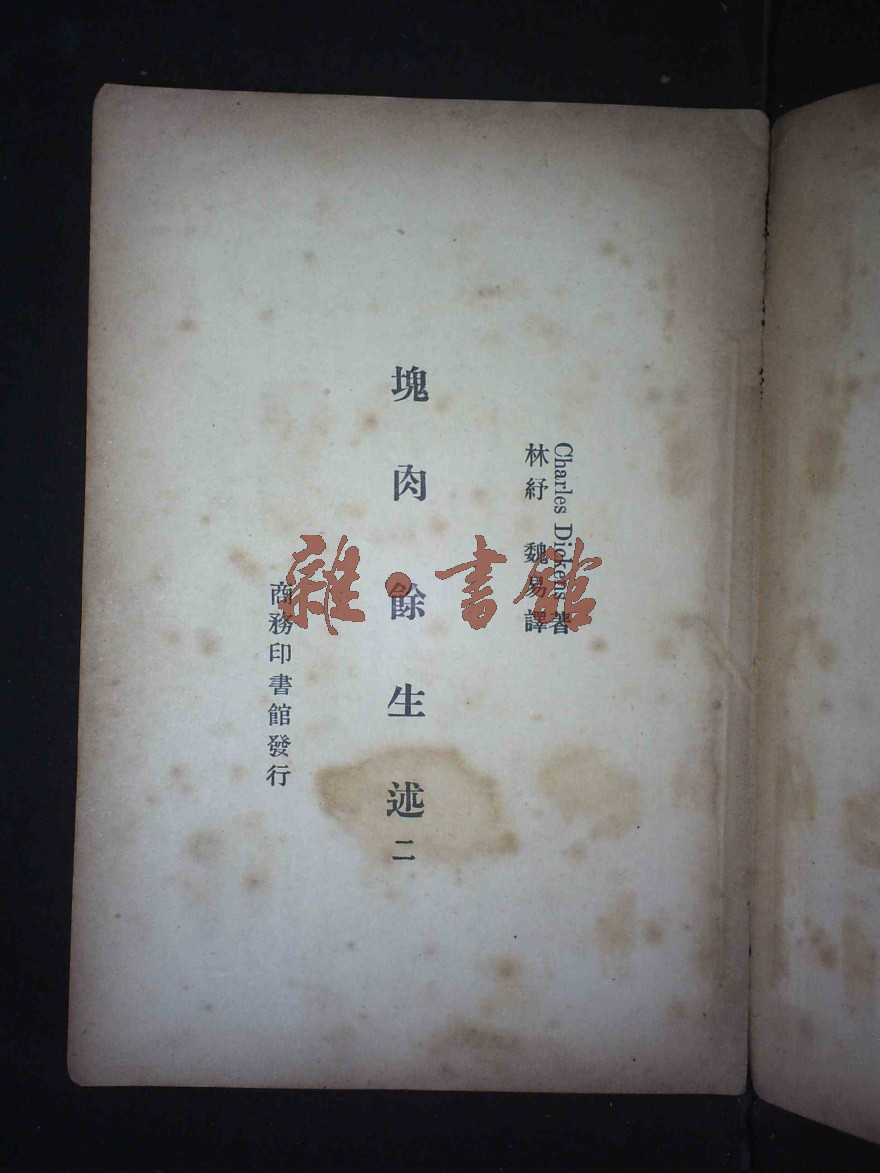 Charles Dickens著
林紓 魏易譯
塊肉餘生述 二
商務印書館發行
雜·書館